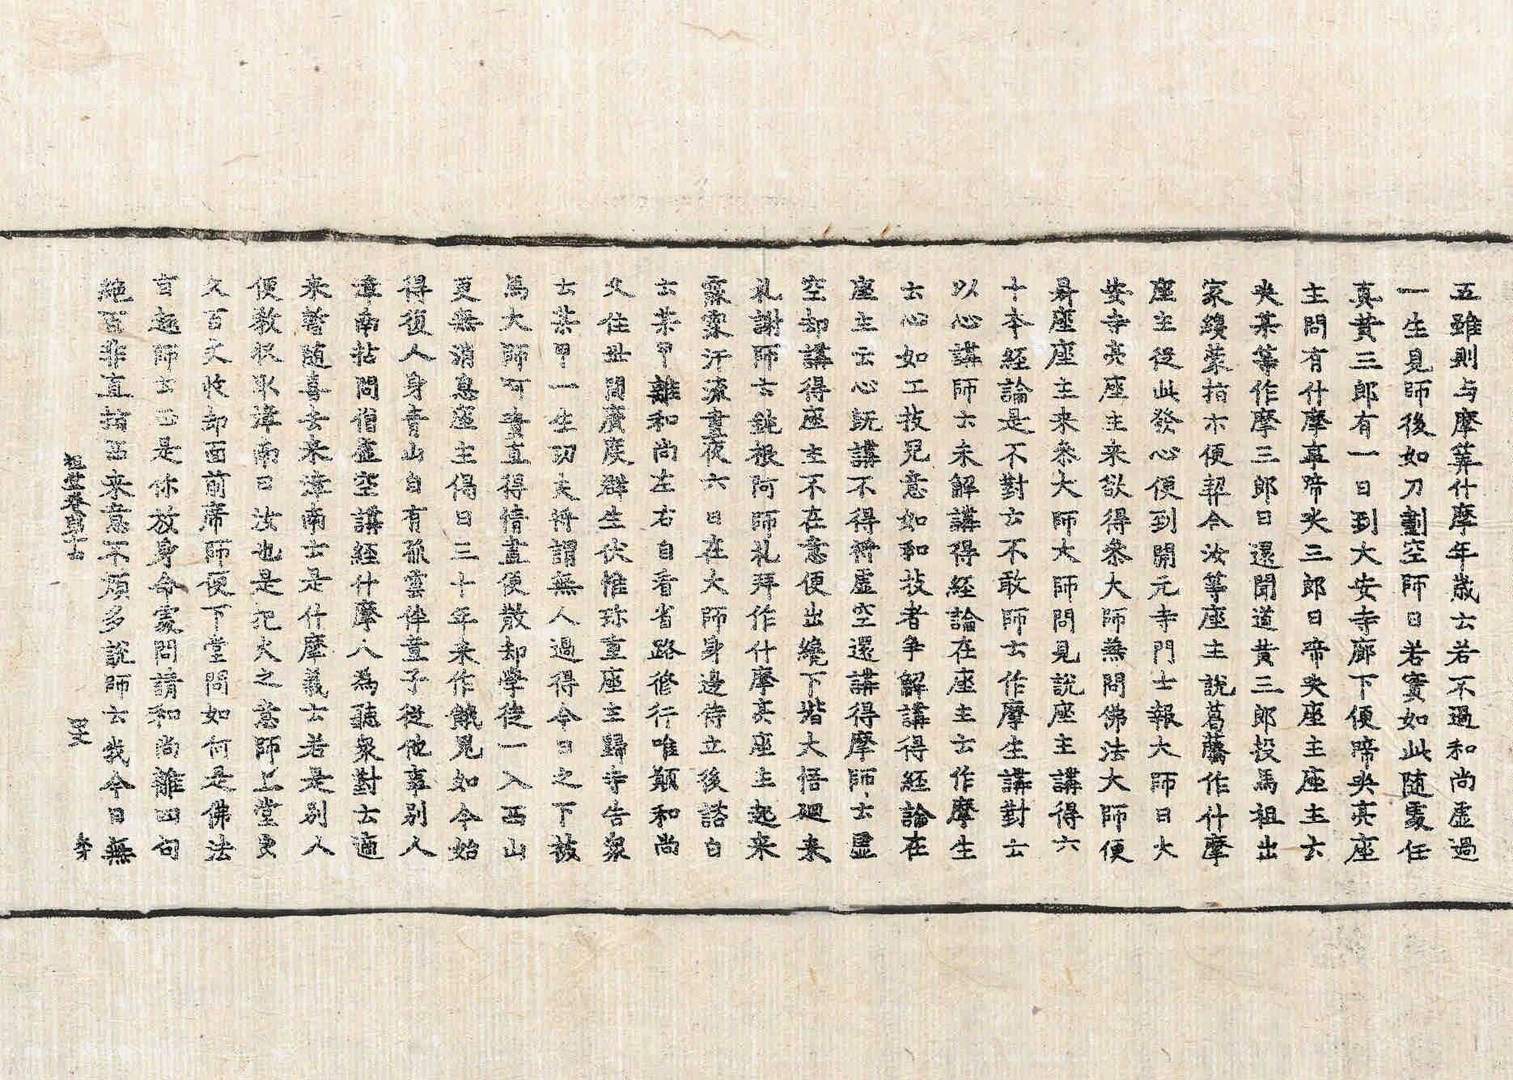 五雖則与摩筭什摩年歲云若不過和尚虛過
一生見師後如刀劃空師曰若實如此随處任
真黃三郎有一日到大安寺廊下便啼哭亮座
主問有什摩事啼哭三郎曰啼哭座主座主云
哭某等作摩三郎曰還聞道黃三郎投馬祖出
家纔蒙指示便契合汝等座主說葛藤作什摩
座主從此發心便到開元寺門士報大師曰大
安寺亮座主来欲得參大師兼問佛法大師便
昇座座主来參大師大師問見說座主講得六
十本經論是不對云不敢師云作摩生講對云
以心講師云未解講得經論在座主云作摩生
云心如工技兒意如和技者爭解講得經論在
座主云心旣講不得將虛空還講得摩師云虛
空却講得座主不在意便出纔下堦大悟廻来
礼謝師云鈍根阿師礼拜作什摩亮座主起来
霢霂汗流晝夜六日在大師身邊侍立後諮白
云某甲離和尚左右自看省路修行唯願和尚
久住世間廣度群生伏惟珎重座主歸寺告衆
云某甲一生功夫將謂無人過得今日之下被
馬大師呵嘖直得情盡便散却學徒一入西山
更無消息座主偈曰三十年来作餓鬼如今始
得復人身青山自有孤雲伴童子從他事別人
漳南拈問僧虛空講經什摩人為聽衆對云適
来暫随喜去来漳南云是什摩義云若是別人
便教收取漳南曰汝也是把火之意師上堂良
久百丈收却面前席師便下堂問如何是佛法
旨趣師云正是你放身命處問請和尚離四句
絕百非直指西来意不煩多說師云我今日無
祖堂卷第十四